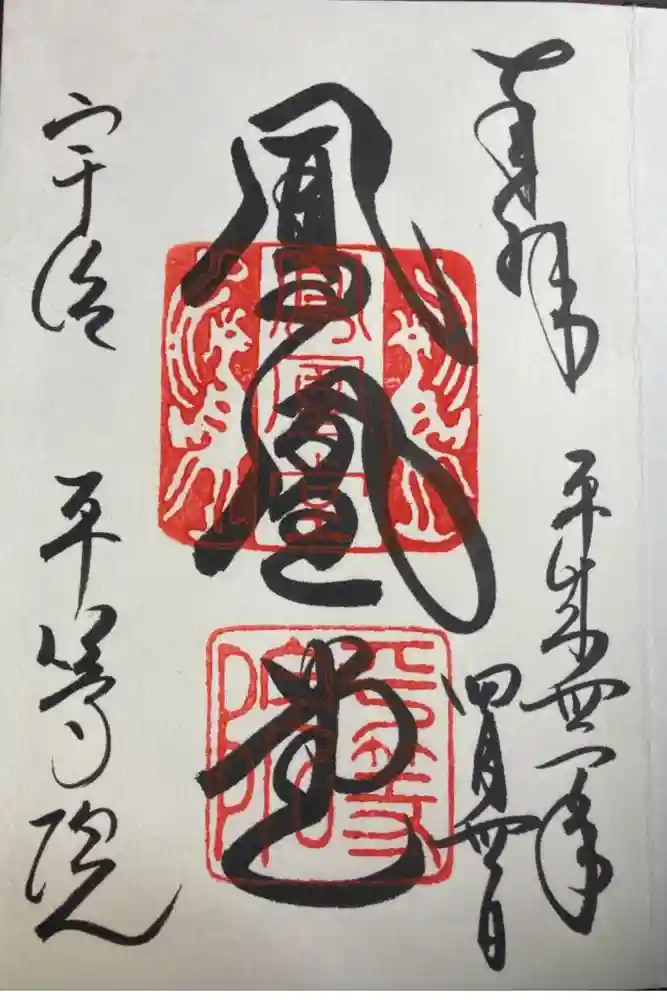 奉拝
平成丗一年
四月丗日
鳳凰堂
鳳凰堂
平等院
宇治 平等院